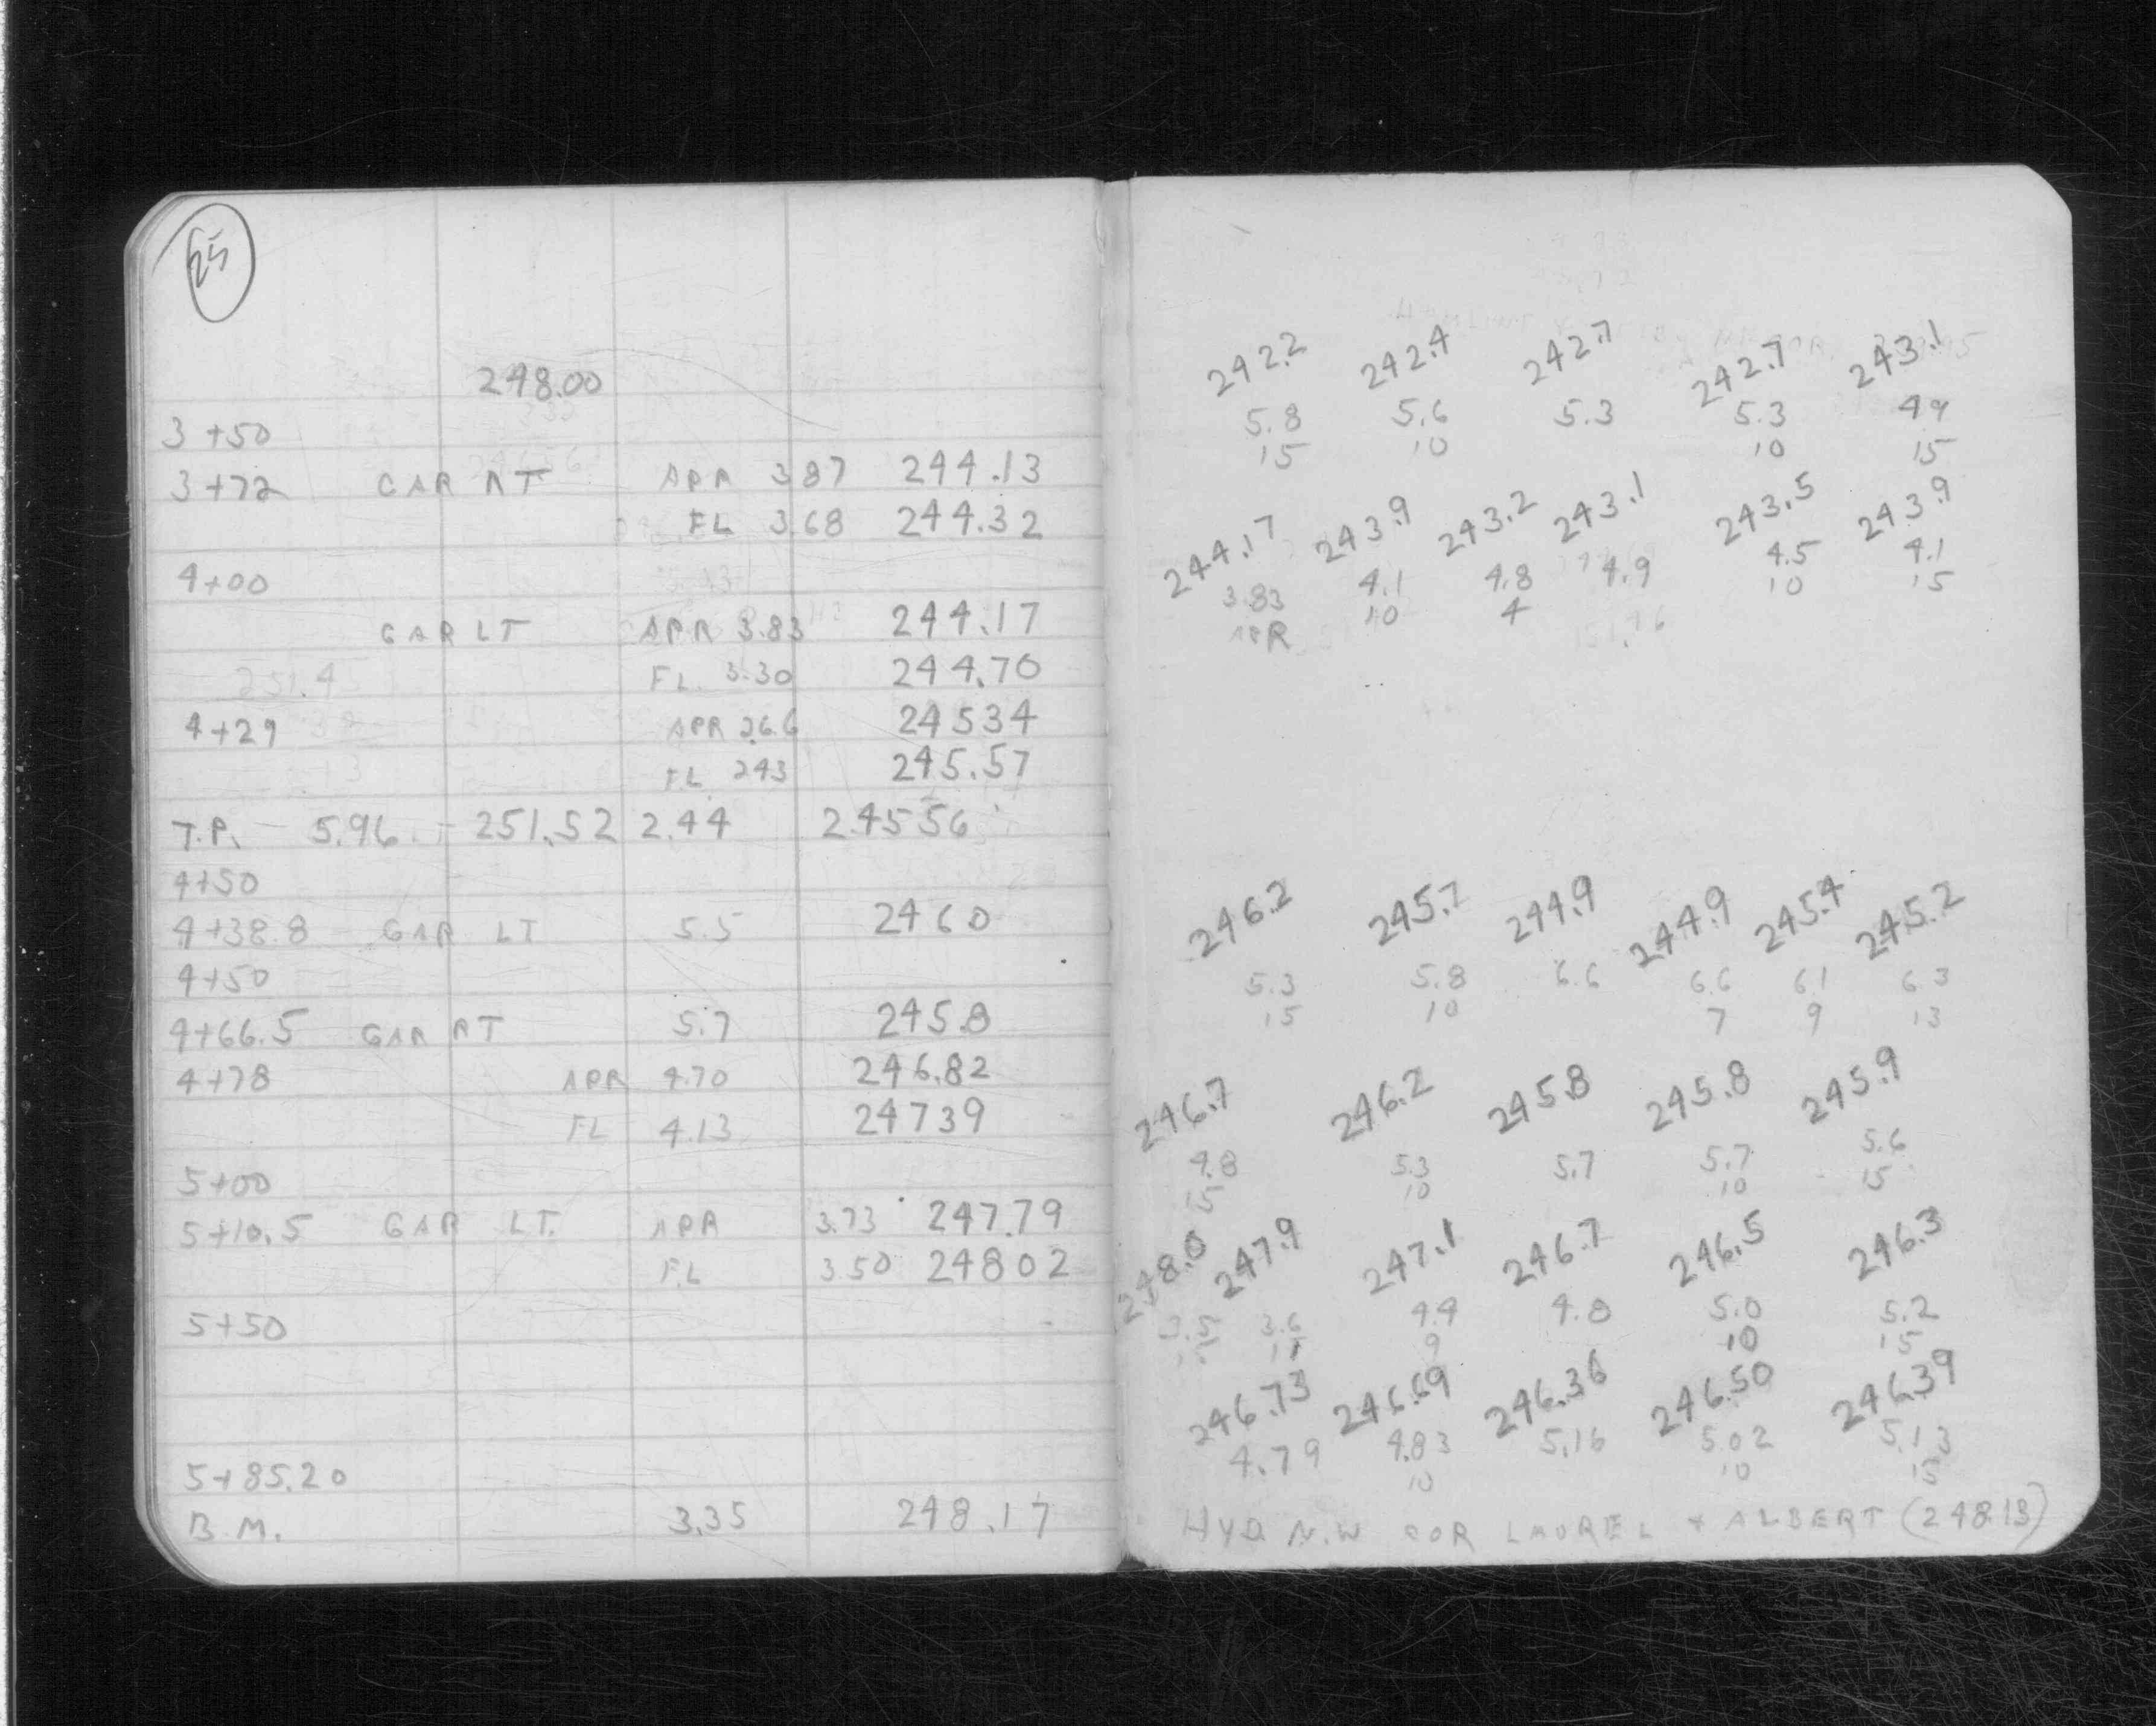 25
248.00
3+50
3+72 GAR RT APR 3.87 244.13
FL 3.68 244.32
4+00
GAR LT APR 3.83 244.17
FL. 3.30 244.70
4+29 APR 2.66 24534
FL 243 245.57
T.P. 5.96 251.52 2.44 24556
4+50
4+38.8 GAR LT 5.5 2460
4+50
4+66.5 GAR RT 5.7 245.8
4+78 APR 4.70 246.82
FL 4.13 24739
5+00
5+10.5 GAR LT. APR 3.73 247.79
FL 3.50 24802
5+50
5+85.20
B.M. 3.35 248.17
242.2 242.4 242.7 242.7 243.1
5.8 5.6 5.3 5.3 4.9
15 10 10 15
244.17 243.9 243.2 243.1 243.5 243.9
3.83 4.1 4.8 4.9 4.5 4.1
APR 10 4 10 15
246.2 245.7 244.9 244.9 245.4 245.2
5.3 5.8 6.6 6.6 6.1 6.3
15 10 7 9 13
246.7 246.2 245.8 245.8 245.9
4.8 5.3 5.7 5.7 5.6
15 10 10 15
248.0 247.9 247.1 246.7 246.5 246.3
3.5 3.6 4.4 4.8 5.0 5.2
15 11 9 10 15
246.73 246.69 246.36 246.50 246.39
4.79 4.83 5.16 5.02 5.13
10 10 15
HYD. N.W COR LAUREL + ALBERT (248.13)